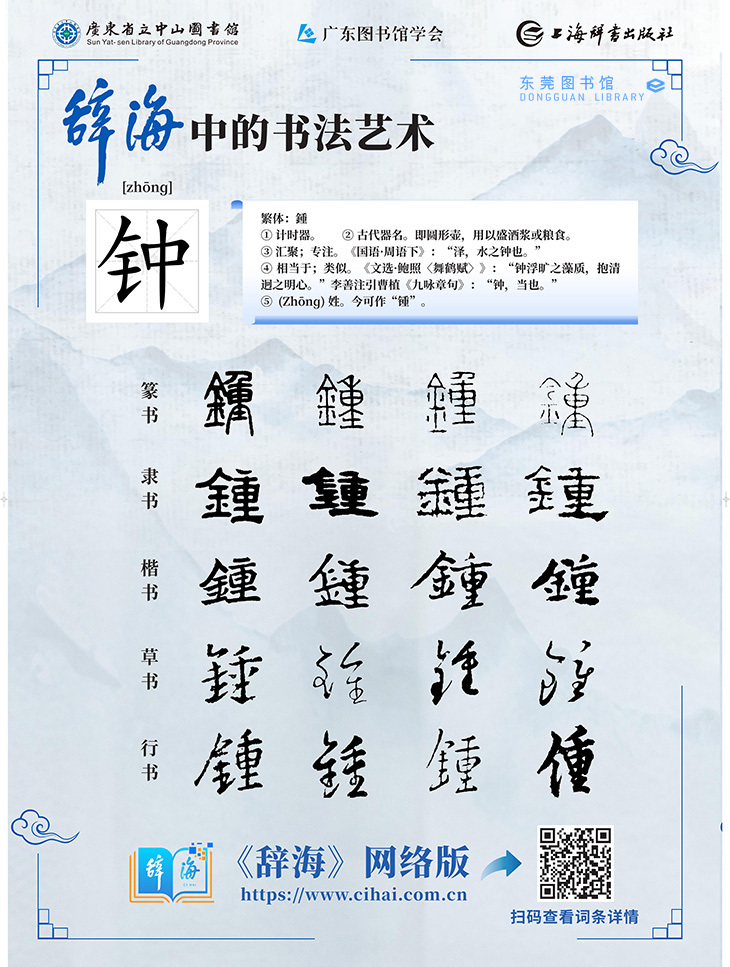 廣東省立中山圖書館
Sun Yat-sen Library of Guangdong Province
广东图书馆学会
上海辞书出版社
东莞图书馆
DONGGUAN LIBRARY
辞海中的书法艺术
[zhōng]
钟
繁体：鍾
① 计时器。 ② 古代器名。即圆形壶，用以盛酒浆或粮食。
③ 汇聚；专注。《国语·周语下》：“泽，水之钟也。”
④ 相当于；类似。《文选·鲍照〈舞鹤赋〉》：“钟浮旷之藻质，抱清
迥之明心。”李善注引曹植《九咏章句》：“钟，当也。”
⑤ (Zhōng) 姓。今可作“锺”。
篆书 鍾 鍾 鍾 鍾
隶书 鍾 鍾 鍾 鍾
楷书 鍾 鍾 鍾 鍾
草书 鍾 鍾 鍾 鍾
行书 鍾 鍾 鍾 鍾
辞海
《辞海》网络版
https://www.cihai.com.cn
扫码查看词条详情